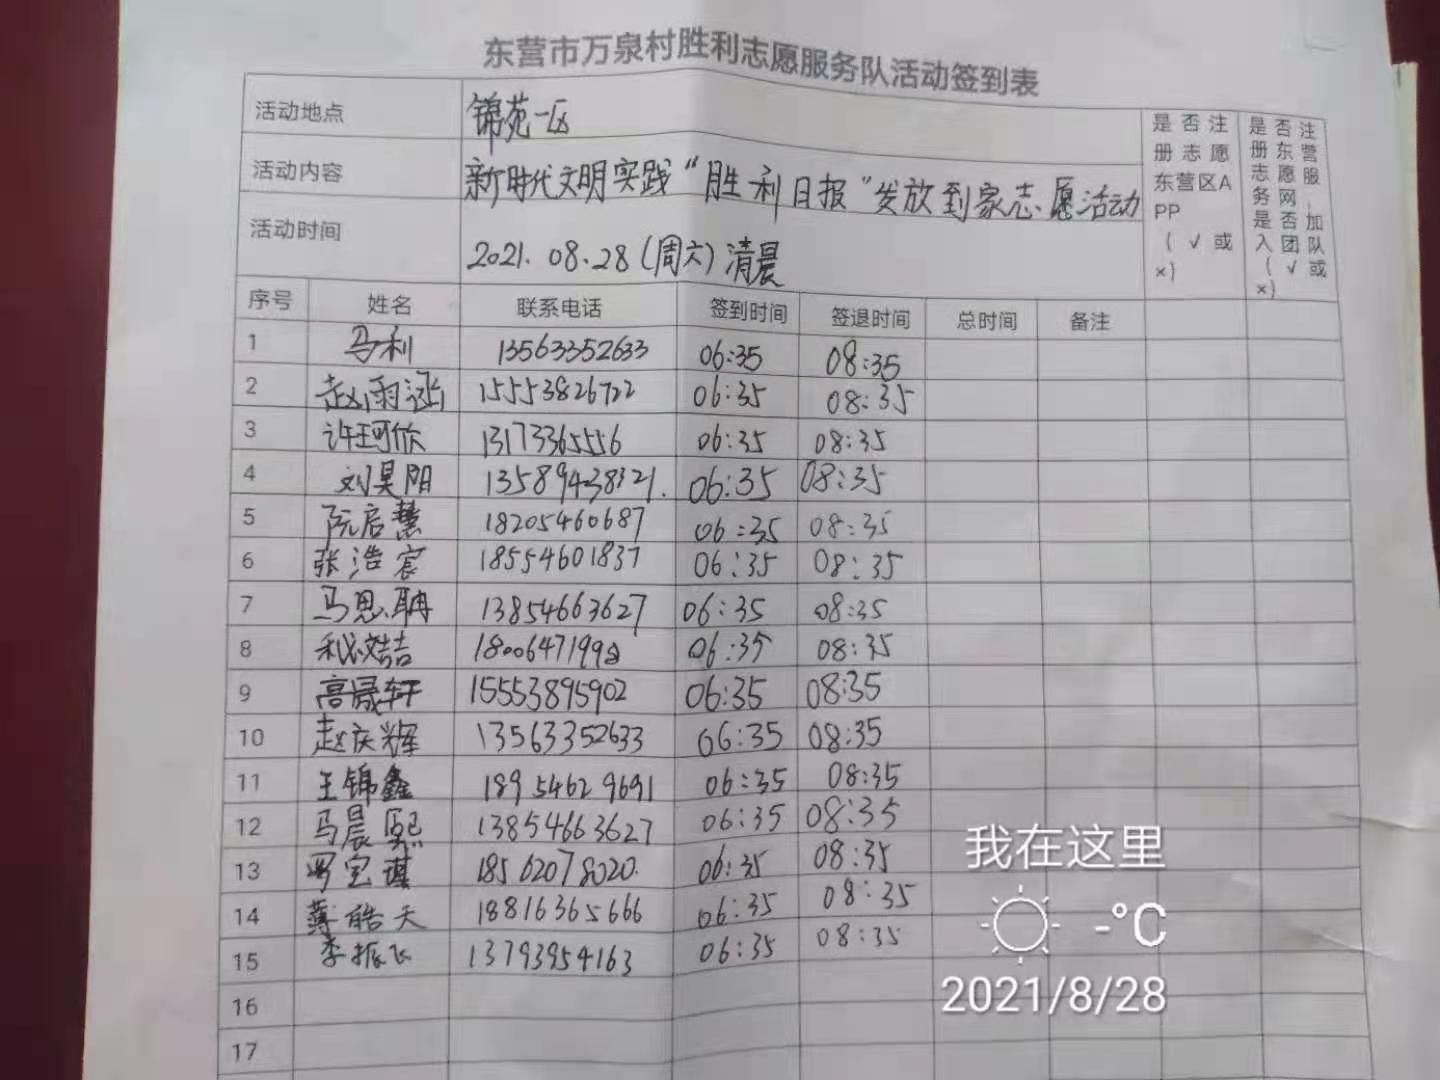 东营市万泉村胜利志愿服务队活动签到表
活动地点 锦苑一区
活动内容 新时代文明实践“胜利日报”发放到家志愿活动
活动时间 2021.08.28(周六)清晨
是否注册志愿东营区APP(√或×)
是否注册东营志愿服务网,是否加入团队(√或×)
序号 姓名 联系电话 签到时间 签退时间 总时间 备注
1 马利 13563352633 06:35 08:35
2 赵雨涵 15553826722 06:35 08:35
3 许珂欣 13173365556 06:35 08:35
4 刘昊阳 13589438321. 06:35 08:35
5 阮启慧 18205460687 06:35 08:35
6 张浩宸 18554601837 06:35 08:35
7 马思聃 13854663627 06:35 08:35
8 06:35 08:35
9 高晟轩 15553895902 06:35 08:35
10 赵庆辉 13563352633 06:35 08:35
11 王锦鑫 18954629691 06:35 08:35
12 马晨熙 13854663627 06:35 08:35
13 罗宝琪 18562078020. 06:35 08:35
14 薄皓天 18816365666 06:35 08:35
15 李振飞 13793954163 06:35 08:35
16
17
我在这里
-°C
2021/8/28